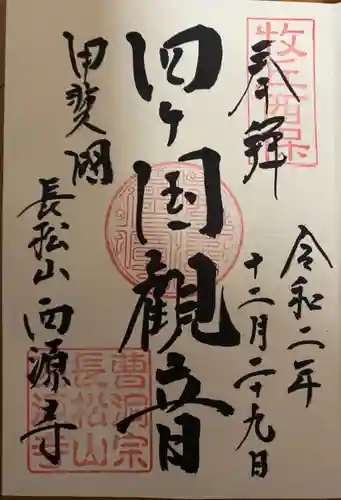 奉拝
令和二年
十二月二十九日
四ヶ国観音
甲斐國
長松山西源寺
曹洞宗
長松山
西源寺